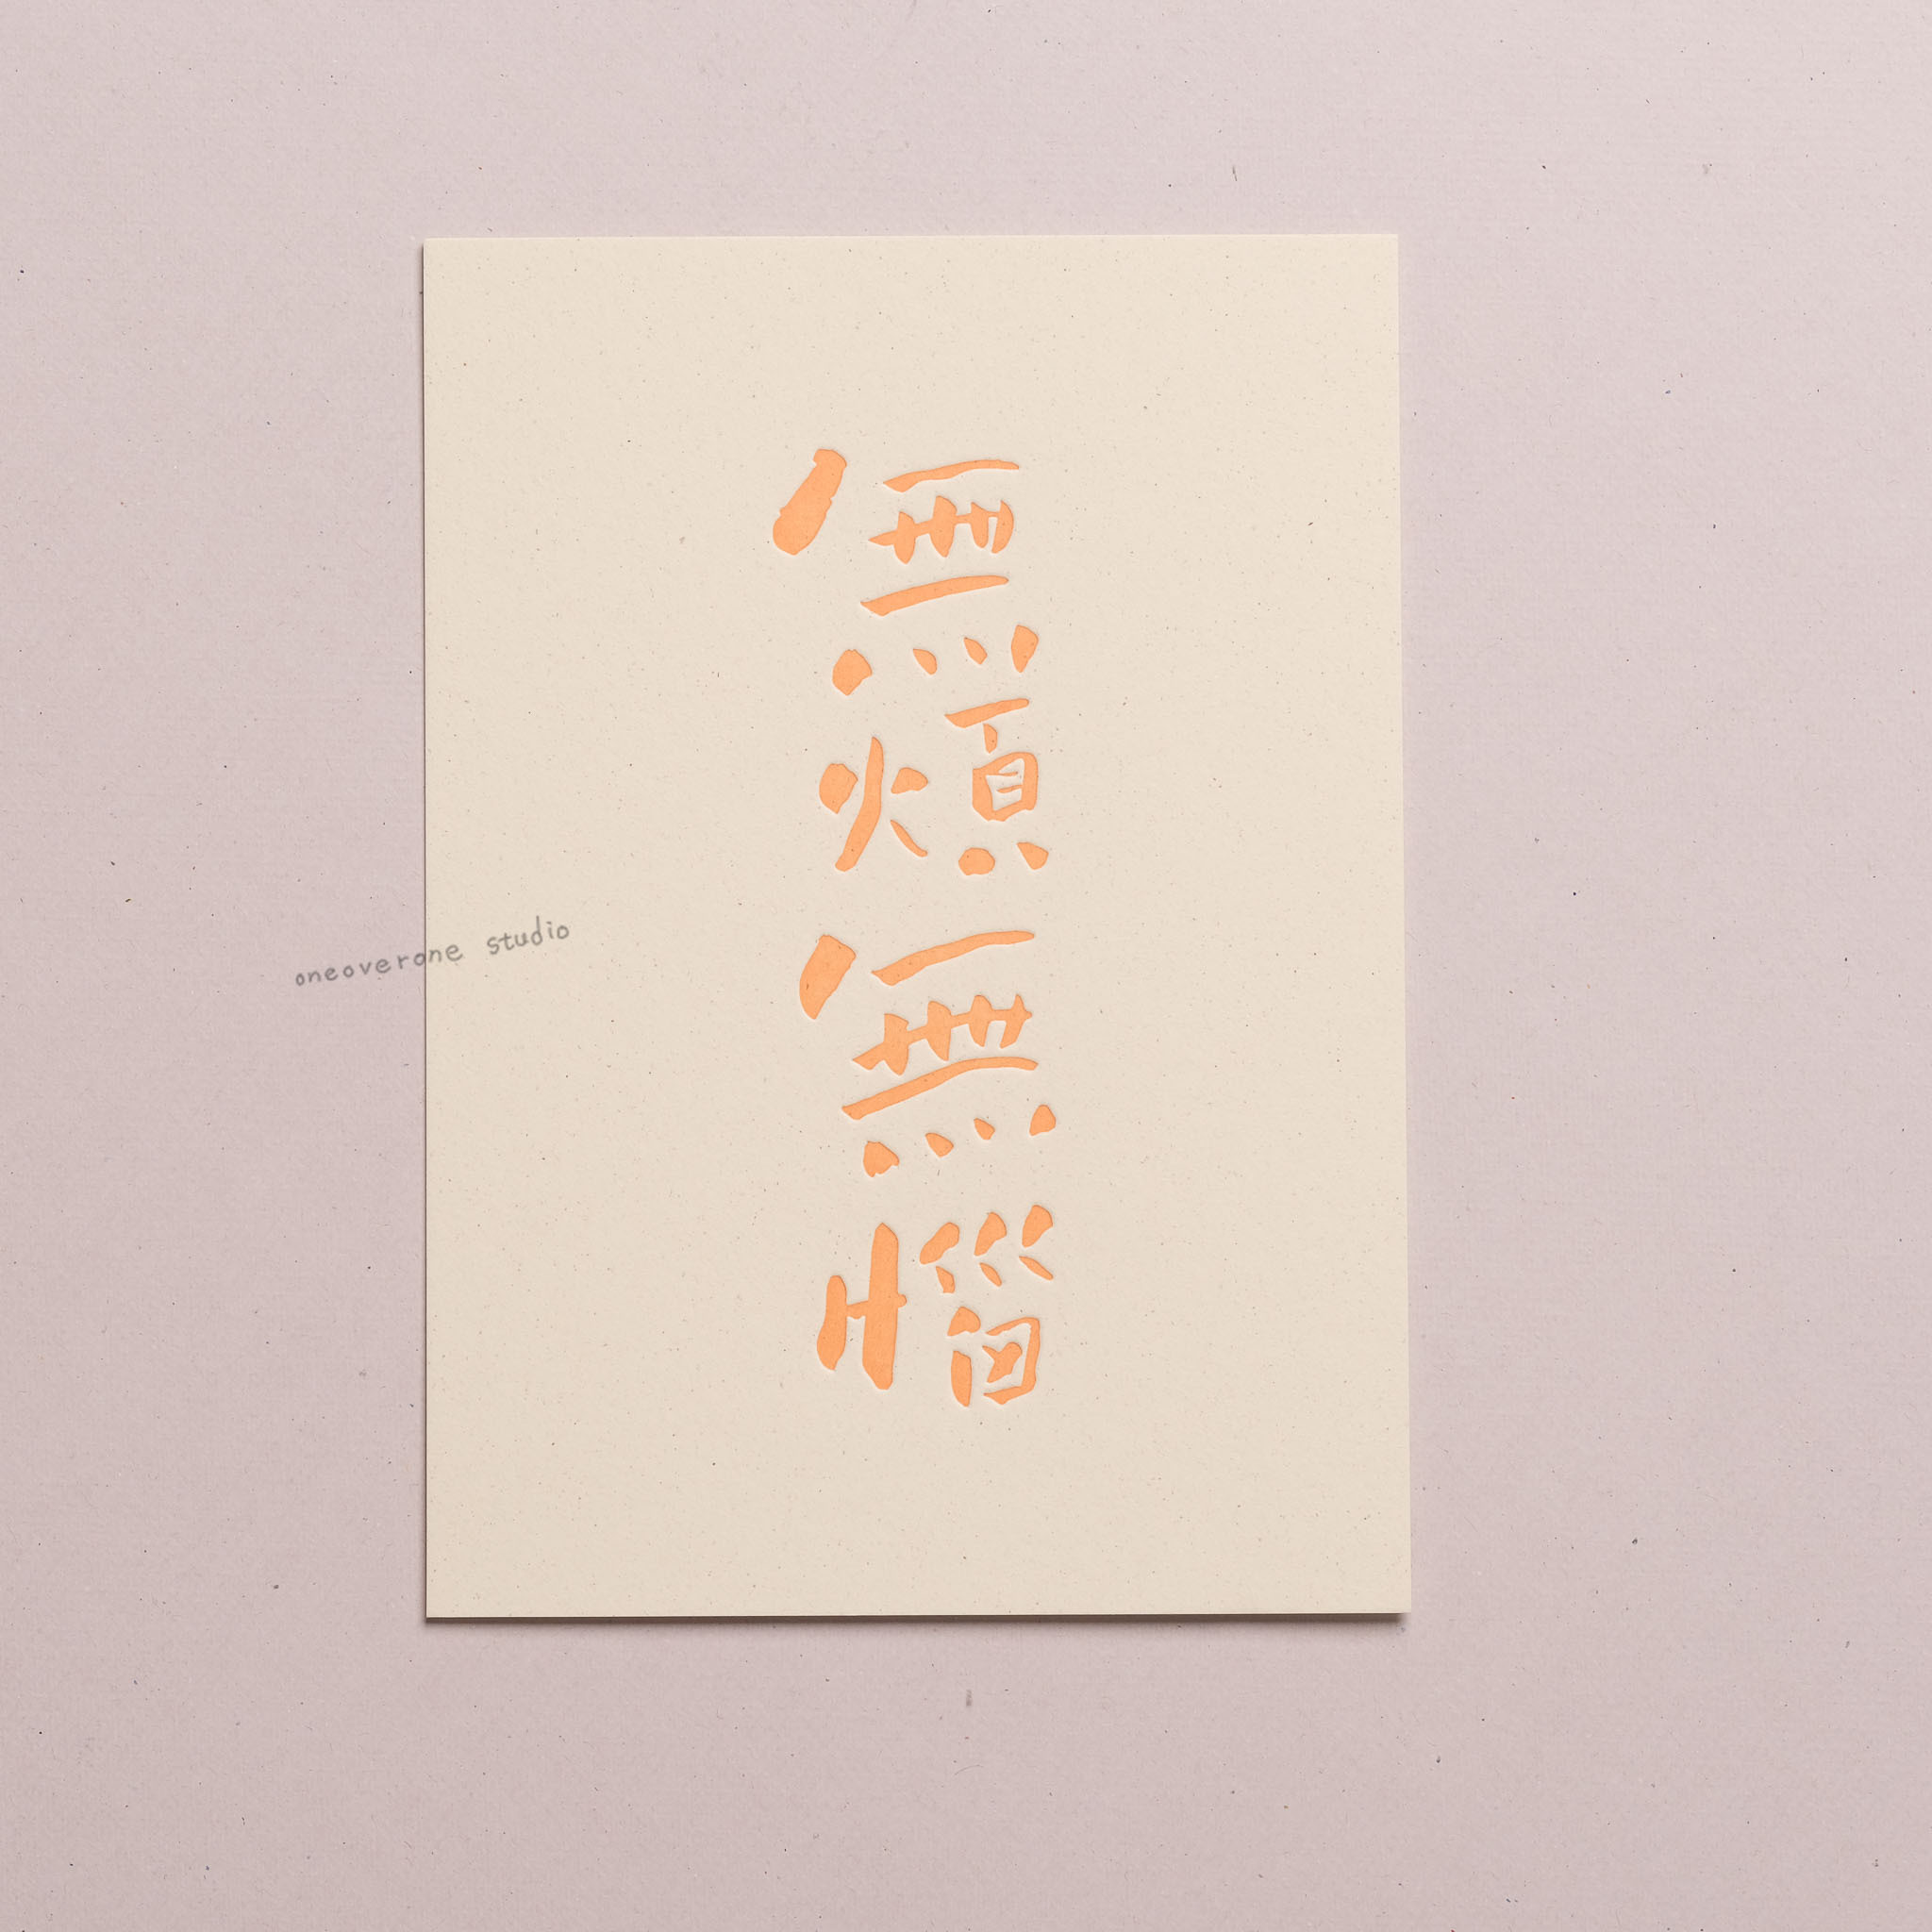 無煩無惱
oneoverone studio